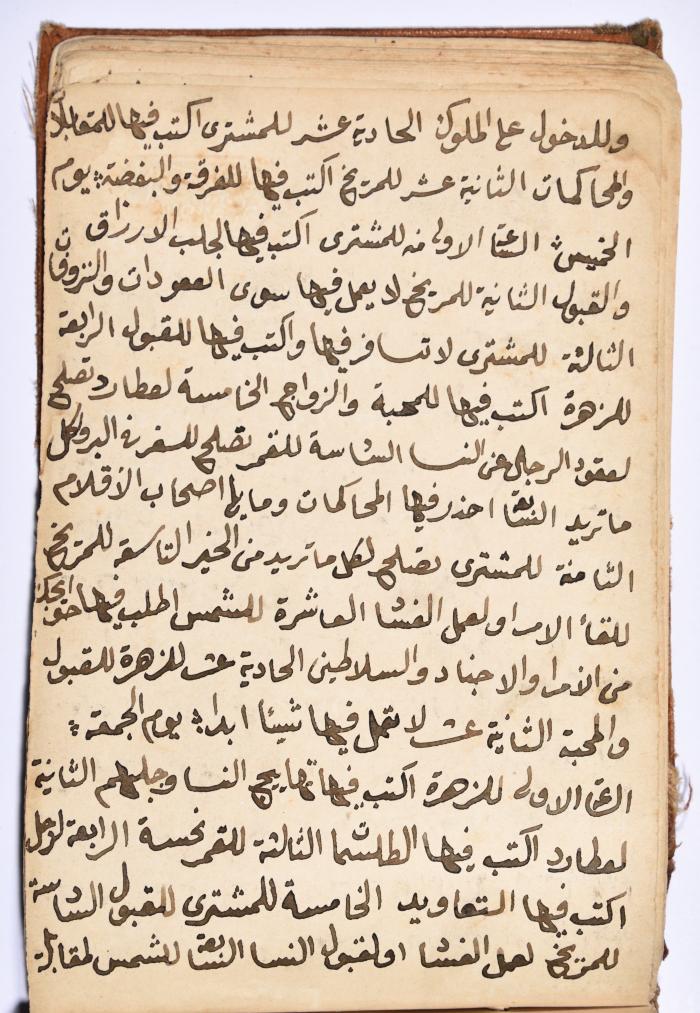 وللدخول على الملوك الحادية عشر للمشترى اكتب فيها للمقابلا
والمحاكمات الثانية عشر للمريخ اكتب فيها للفرقة والبغضة يوم
الخميس الساعة الاولى منه للمشترى اكتب فيها لجلب الارزاق
والقبول الثانية للمريخ لا يعمل فيها سوى العقودات والنزوفات
الثالثة للمشترى لا تسافر فيها واكتب فيها للقبول الرابعة
للزهرة اكتب فيها للمحبة والزواج الخامسة لعطارد تصلح
لعقود الرجال عن النسا السادسة للقمر تصلح للسفر في البر ولكل
ما تريد السابعة احذر فيها المحاكمات وما يلى اصحاب الأقلام
الثامنة للمشترى تصلح لكل ما تريد من الخير التاسعة للمريخ
للقاء الامرا ولعمل الفسا العاشرة للشمس اطلب فيها حوائجك
من الأمرا والاجناد والسلاطين الحادية عشر للزهرة للقبول
والمحبة الثانية عشر لا تعمل فيها شيئا ابدا يوم الجمعة
الساعة الاولى للزهرة اكتب فيها تهاييج النسا وجلبهم الثانية
لعطارد اكتب فيها الطلسمات الثالثة للقمر نحسة الرابعة لزحل
اكتب فيها التعاويد الخامسة للمشترى للقبول السادسة
للمريخ لعمل الفسا او لقبول النسا السابعة للشمس لمقابلة